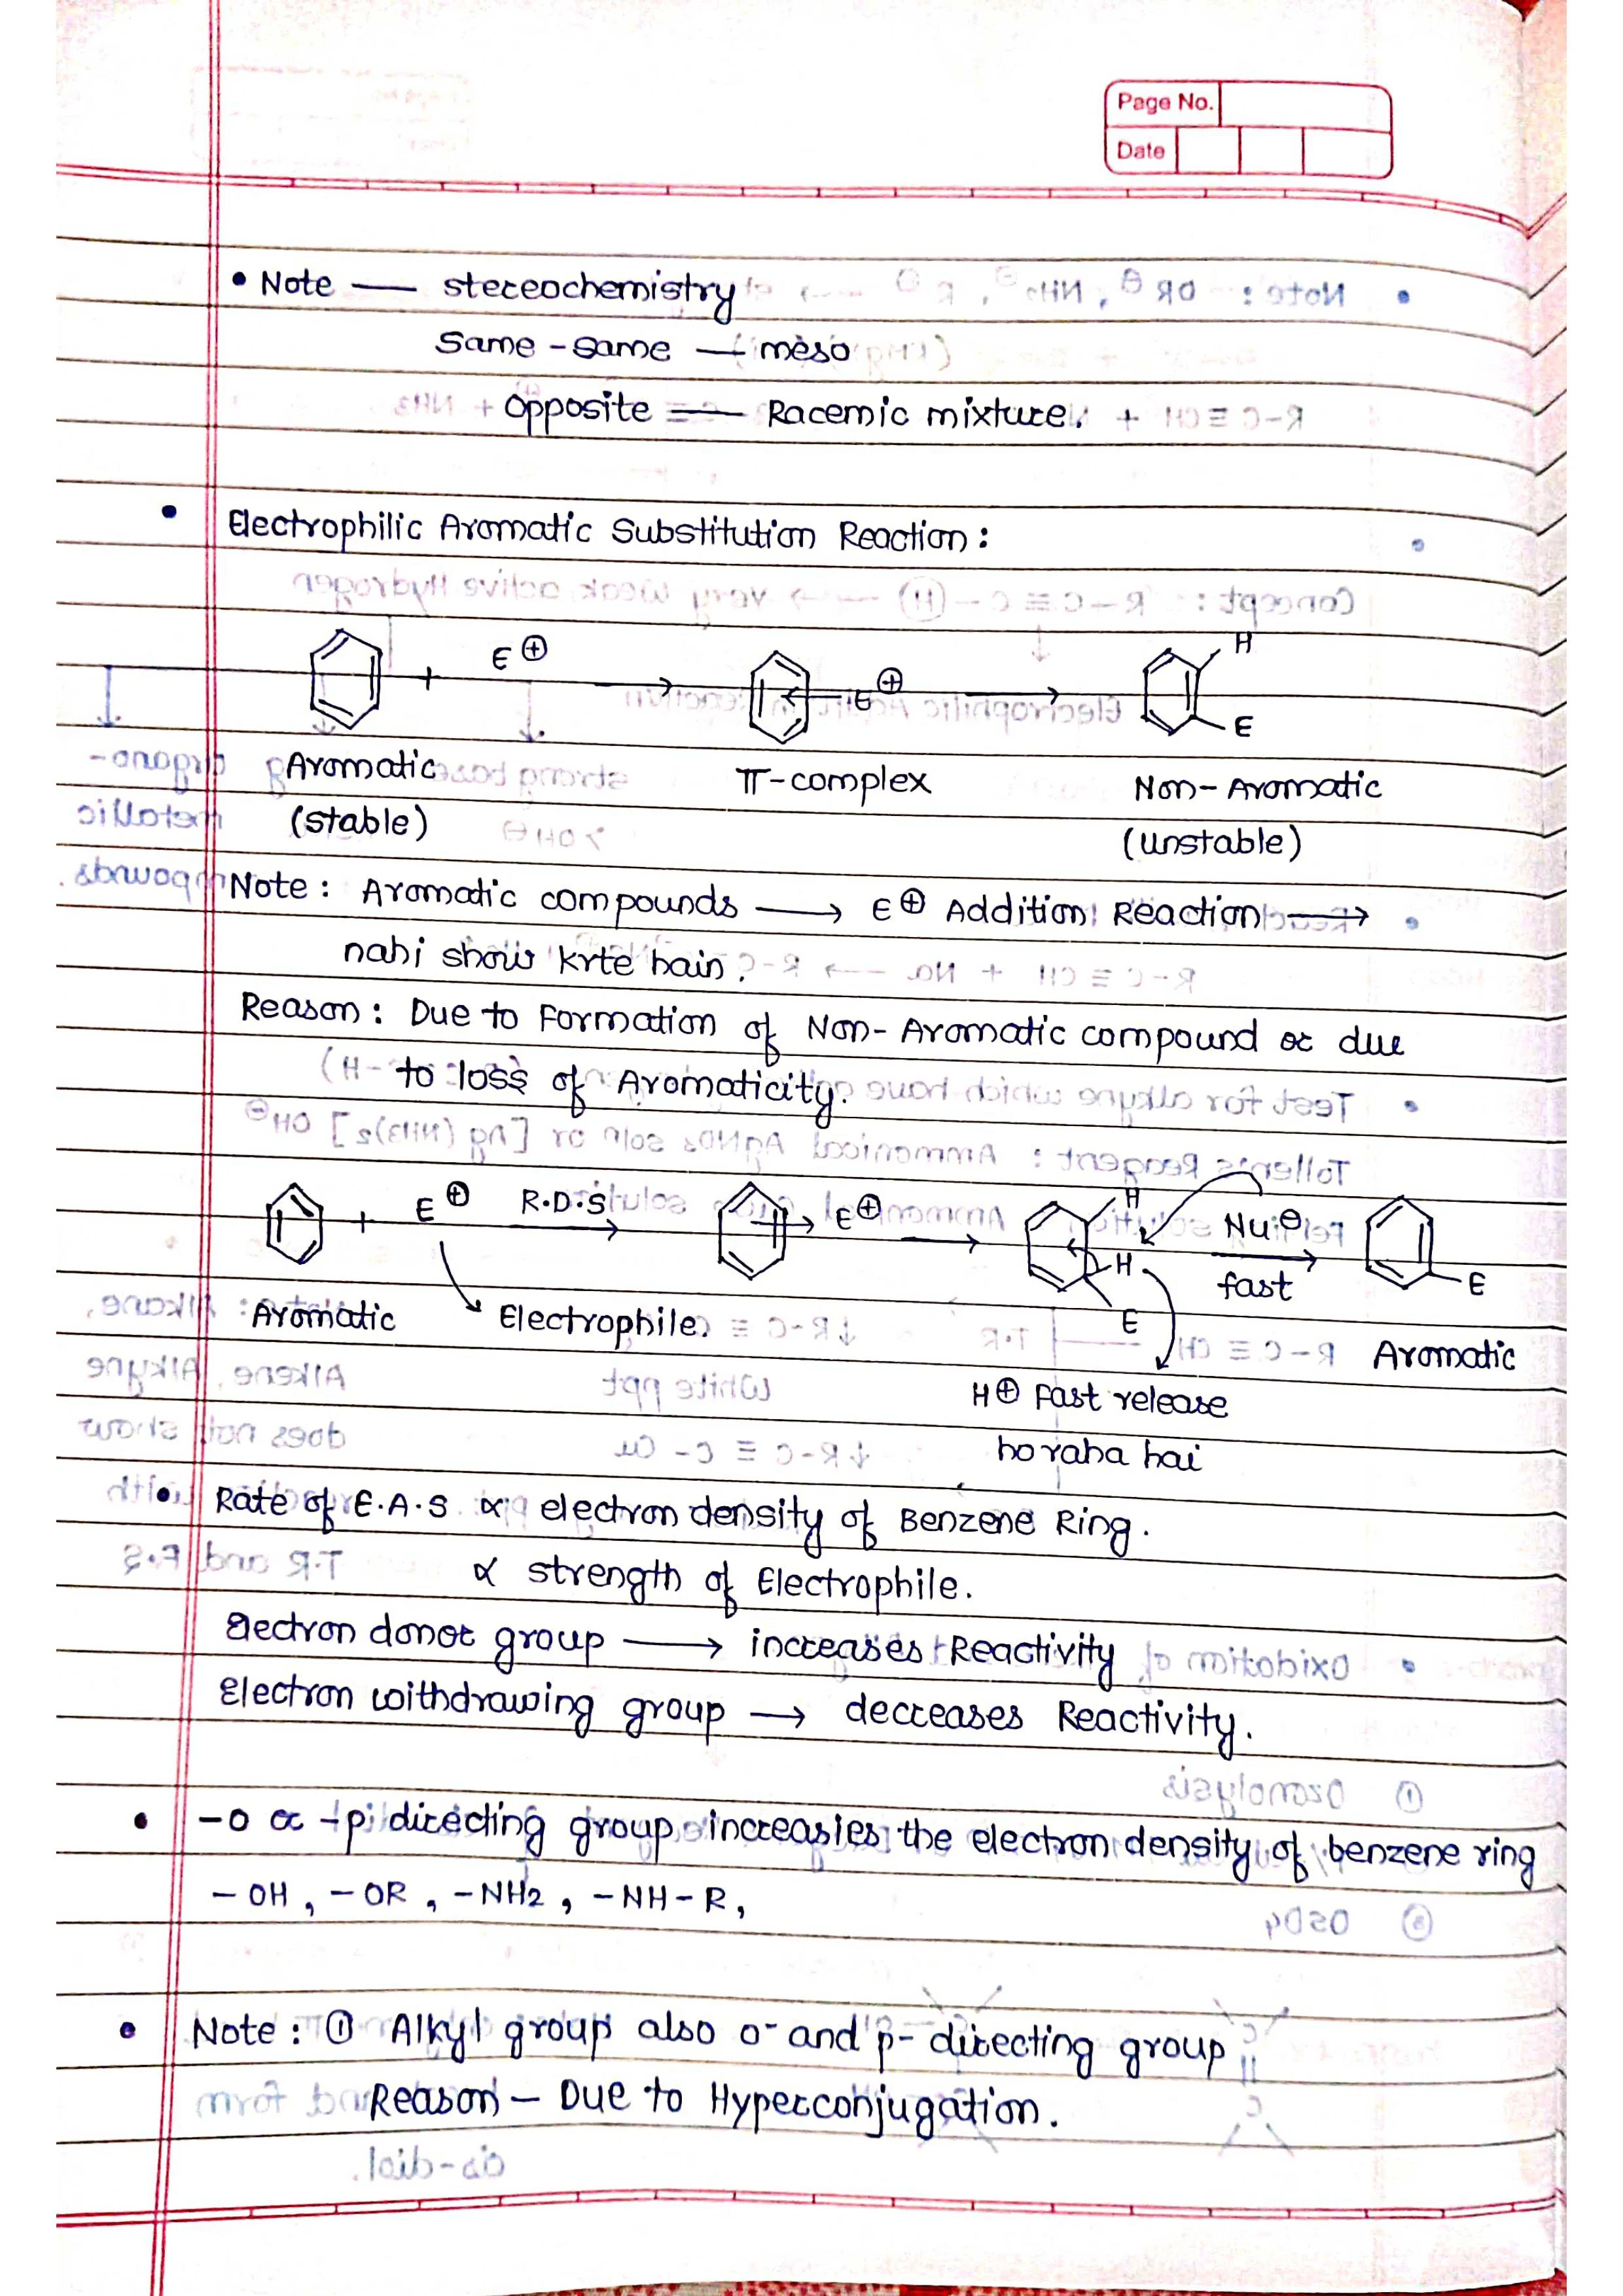 Page No.
Date
• Note — stereochemistry
Same - same — meso
Opposite — Racemic mixture.
• Electrophilic Aromatic Substitution Reaction :
+ E⊕ → E⊕ → H E
Aromatic π-complex Non-Aromatic
(stable) (unstable)
Note : Aromatic compounds → E⊕ Addition Reaction →
nahi show krte hain.
Reason : Due to Formation of Non-Aromatic compound or due
to loss of Aromaticity.
+ E⊕ R.D.S → E⊕ → H H E Nu⊖ fast → E
Aromatic Electrophile. Aromatic
H⊕ Fast release
ho raha hai
• Rate of E.A.S ∝ electron density of Benzene Ring.
∝ strength of Electrophile.
Electron donor group → increases Reactivity
Electron withdrawing group → decreases Reactivity.
• -o or -p directing group increasies the electron density of benzene ring
- OH , - OR , - NH2 , - NH - R ,
• Note : ① Alkyl group also o- and p- directing group
Reason - Due to Hyperconjugation.